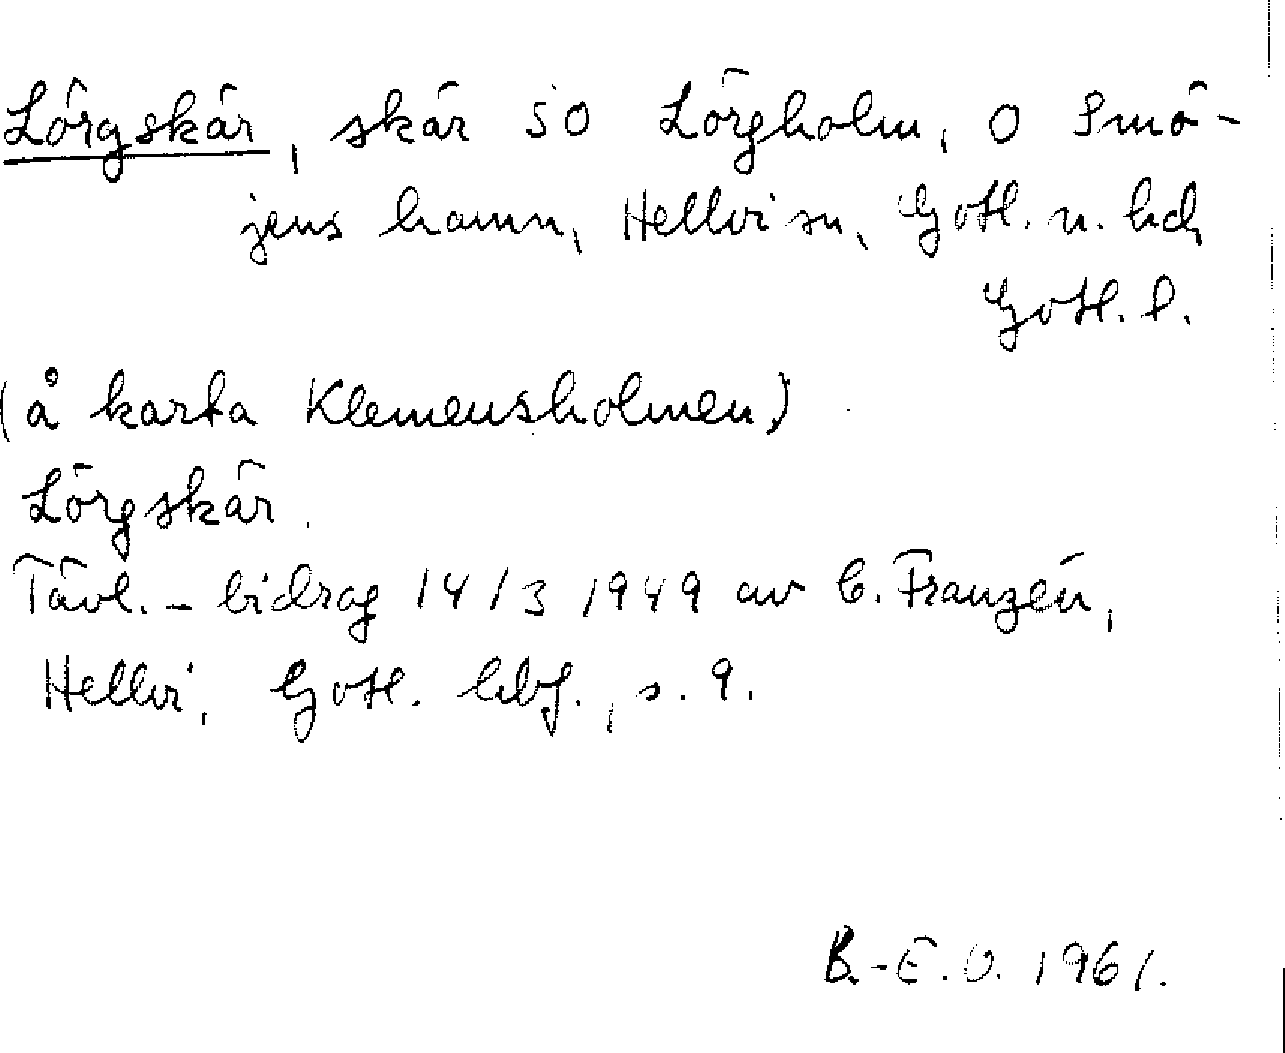 Lörgskär, skär SO Lörgholm, O Smö-
jens hamn, Hellvi sn, Gotl. n. hd,
Gotl. l.
(å karta Klemensholmen)
Lörgskär.
Tävl.-bidrag 14/3 1949 av C. Franzén,
Hellvi, Gotl. hbf., s. 9.
B.-E. O. 1961.